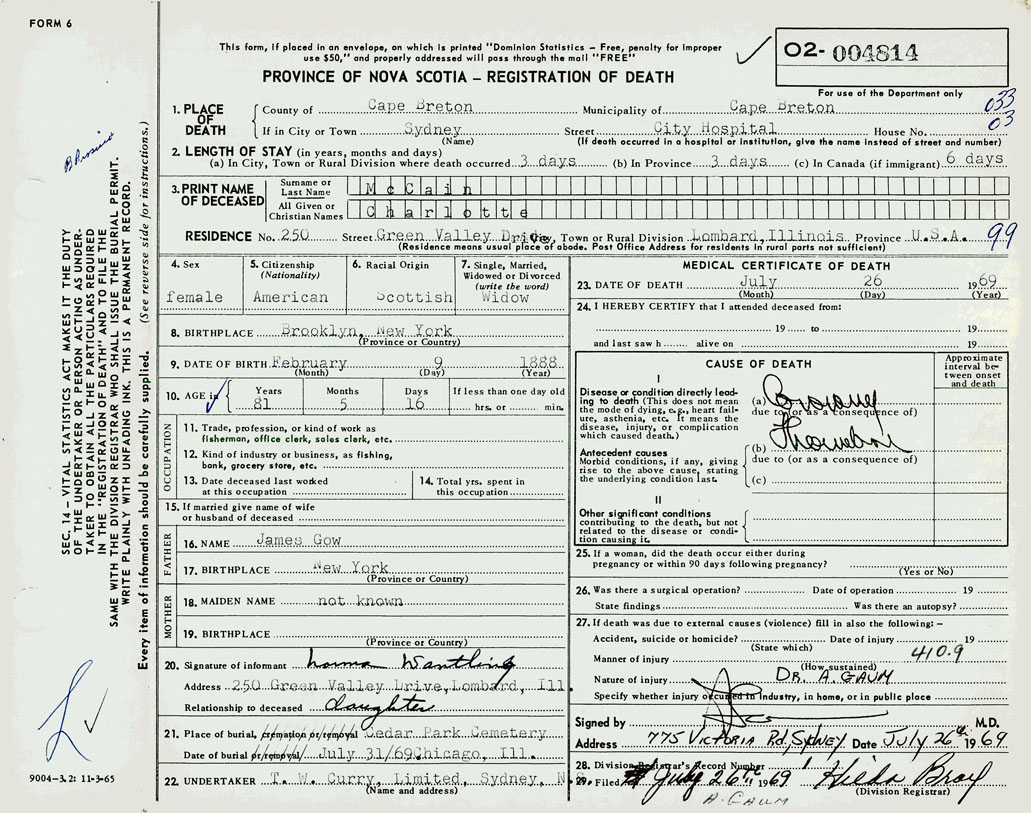 FORM 6
This form, if placed in an envelope, on which is printed "Dominion Statistics – Free, penalty for improper
use $50," and properly addressed will pass through the mail "FREE"
O2- 004814
For use of the Department only
PROVINCE OF NOVA SCOTIA – REGISTRATION OF DEATH
033
03
1. PLACE OF DEATH
County of Cape Breton Municipality of Cape Breton
If in City or Town Sydney Street City Hospital House No.
(Name) (If death occurred in a hospital or institution, give the name instead of street and number)
2. LENGTH OF STAY (in years, months and days)
(a) In City, Town or Rural Division where death occurred 3 days (b) In Province 3 days (c) In Canada (if immigrant) 6 days
3. PRINT NAME OF DECEASED
Surname or Last Name McCain
All Given or Christian Names Charlotte
RESIDENCE No. 250 Street Green Valley Drive, Town or Rural Division Lombard, Illinois Province U.S.A. 99
(Residence means usual place of abode. Post Office Address for residents in rural parts not sufficient)
4. Sex
female
5. Citizenship
(Nationality)
American
6. Racial Origin
Scottish
7. Single, Married,
Widowed or Divorced
(write the word)
Widow
8. BIRTHPLACE Brooklyn, New York
(Province or Country)
9. DATE OF BIRTH February 9 1888
(Month) (Day) (Year)
10. AGE in
Years Months Days If less than one day old
81 5 16 hrs. or min.
OCCUPATION
11. Trade, profession, or kind of work as
fisherman, office clerk, sales clerk, etc.
12. Kind of industry or business, as fishing,
bank, grocery store, etc.
13. Date deceased last worked
at this occupation
14. Total yrs. spent in
this occupation
15. If married give name of wife
or husband of deceased
FATHER
16. NAME James Gow
17. BIRTHPLACE New York
(Province or Country)
MOTHER
18. MAIDEN NAME not known
19. BIRTHPLACE
(Province or Country)
20. Signature of informant Norma Wantling
Address 250 Green Valley Drive, Lombard, Ill.
Relationship to deceased daughter
21. Place of burial, cremation or removal Cedar Park Cemetery
Date of burial or removal July 31/69 Chicago, Ill.
22. UNDERTAKER T. W. Curry, Limited, Sydney, N.S.
(Name and address)
MEDICAL CERTIFICATE OF DEATH
23. DATE OF DEATH July 26 1969
(Month) (Day) (Year)
24. I HEREBY CERTIFY that I attended deceased from:
19 to 19
and last saw h alive on 19
CAUSE OF DEATH
Approximate
interval be-
tween onset
and death
I
Disease or condition directly lead-
ing to death (This does not mean
the mode of dying, e.g., heart fail-
ure, asthenia, etc. It means the
disease, injury, or complication
which caused death.)
(a) Coronary
due to (or as a consequence of)
Thrombosis
Antecedent causes
Morbid conditions, if any, giving
rise to the above cause, stating
the underlying condition last.
(b)
due to (or as a consequence of)
(c)
II
Other significant conditions
contributing to the death, but not
related to the disease or condi-
tion causing it.
25. If a woman, did the death occur either during
pregnancy or within 90 days following pregnancy?
(Yes or No)
26. Was there a surgical operation? Date of operation 19
State findings Was there an autopsy?
27. If death was due to external causes (violence) fill in also the following: –
Accident, suicide or homicide? Date of injury 19
(State which)
410.9
Manner of injury
(How sustained)
Nature of injury DR. A. GAUM
Specify whether injury occurred in industry, in home, or in public place
Signed by M.D.
Address 775 VICTORIA Rd, SYDNEY Date JULY 26th 1969
28. Division Registrar's Record Number
29. Filed July 26th 1969 Hilda Bray
(Division Registrar)
A. GAUM
SEC. 14 – VITAL STATISTICS ACT MAKES IT THE DUTY
OF THE UNDERTAKER OR PERSON ACTING AS UNDER-
TAKER TO OBTAIN ALL THE PARTICULARS REQUIRED
IN THE "REGISTRATION OF DEATH" AND TO FILE THE
SAME WITH THE DIVISION REGISTRAR WHO SHALL ISSUE THE BURIAL PERMIT.
WRITE PLAINLY WITH UNFADING INK. THIS IS A PERMANENT RECORD.
Every item of information should be carefully supplied. (See reverse side for instructions.)
9004-3.2: 11-3-65